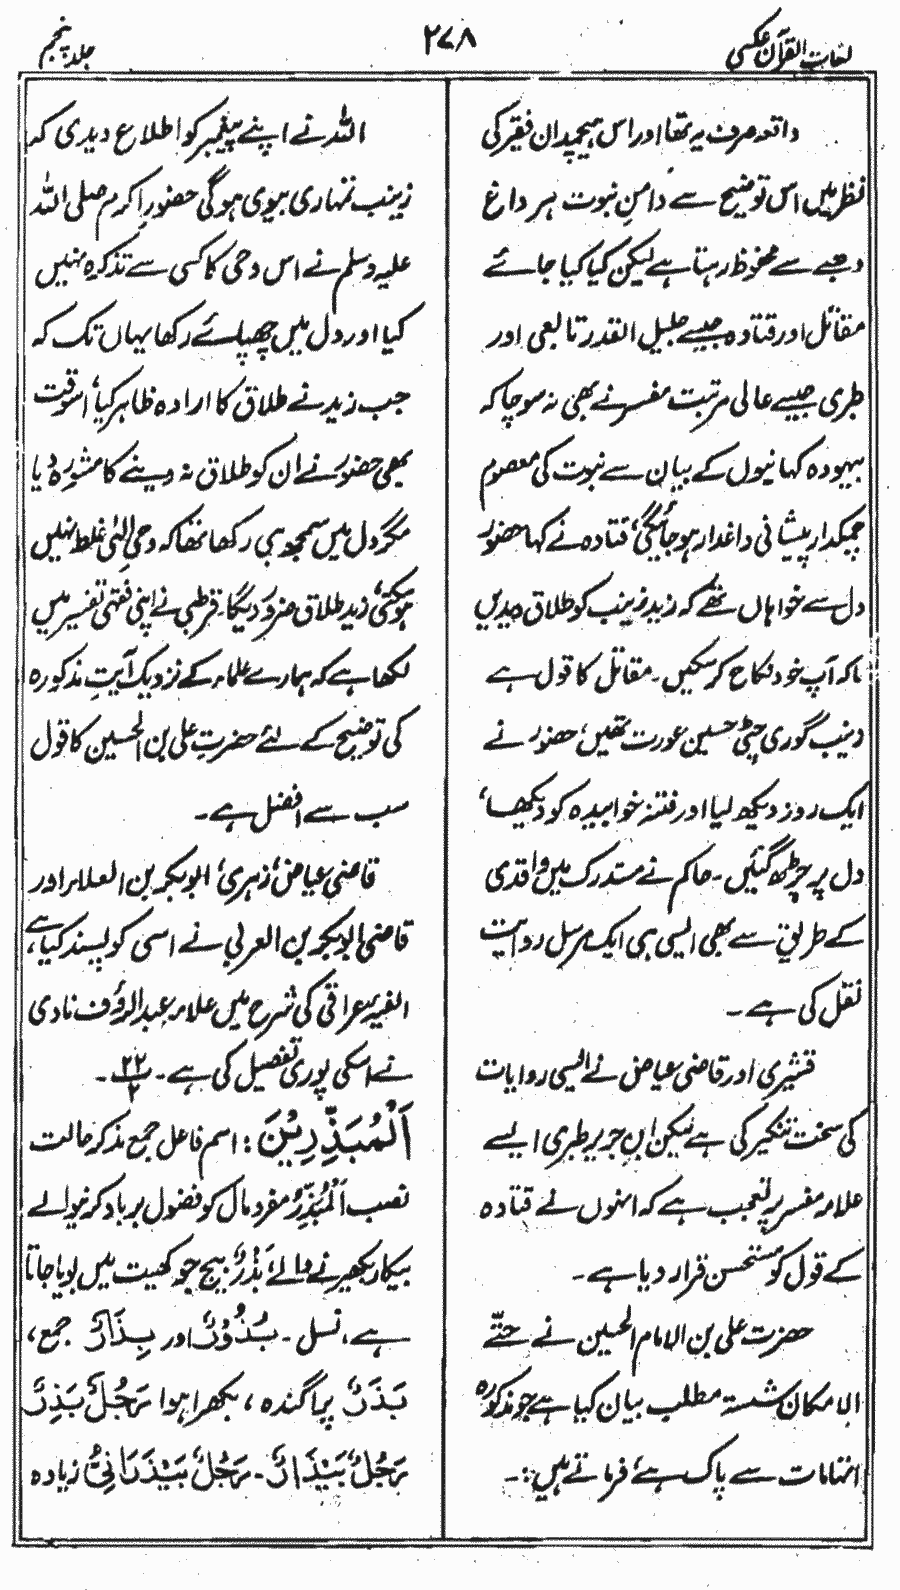 لغات القرآن عکسی
۲۷۸
جلد پنجم
واقعہ صرف یہ تھا اور اس ہیچمدان فقیر کی
نظر میں اس توضیح سے دامنِ نبوت ہر داغ
دھبے سے محفوظ رہتا ہے لیکن کیا کیا جائے
مقاتل اور قتادہ جیسے جلیل القدر تابعی اور
طبری جیسے عالی مرتبت مفسر نے بھی نہ سوچا کہ
بیہودہ کہانیوں کے بیان سے نبوت کی معصوم
چمکدار پیشانی داغدار ہو جائیگی، قتادہ نے کہا حضور
دل سے خواہاں تھے کہ زید زینب کو طلاق دیدیں
تاکہ آپ خود نکاح کر سکیں۔ مقاتل کا قول ہے
زینب گوری چٹی حسین عورت تھیں، حضور نے
ایک روز دیکھ لیا اور فتنۂ خوابیدہ کو دیکھا،
دل پر چڑھ گئیں۔ حاکم نے مستدرک میں واقدی
کے طریق سے بھی ایسی ہی ایک مرسل روایت
نقل کی ہے۔
قشیری اور قاضی عیاض نے ایسی روایات
کی سخت تنکیر کی ہے لیکن ابن جریر طبری ایسے
علامہ مفسر پر تعجب ہے کہ انہوں نے قتادہ
کے قول کو مستحسن قرار دیا ہے۔
حضرت علی بن الامام الحسین نے حتّی
الامکان شستہ مطلب بیان کیا ہے جو مذکورہ
اتہامات سے پاک ہے، فرماتے ہیں:۔
اللہ نے اپنے پیغمبر کو اطلاع دیدی کہ
زینب تمہاری بیوی ہوگی حضور اکرم صلی اللہ
علیہ وسلم نے اس وحی کا کسی سے تذکرہ نہیں
کیا اور دل میں چھپائے رکھا یہاں تک کہ
جب زید نے طلاق کا ارادہ ظاہر کیا، اسوقت
بھی حضور نے ان کو طلاق نہ دینے کا مشورہ دیا
مگر دل میں سمجھ ہی رکھا تھا کہ وحی الٰہی غلط نہیں
ہو سکتی، زید طلاق ضرور دیگا۔ قرطبی نے اپنی فقہی تفسیر میں
لکھا ہے کہ ہمارے علماء کے نزدیک آیتِ مذکورہ
کی توضیح کے لئے حضرت علی بن الحسین کا قول
سب سے افضل ہے۔
قاضی عیاض، زہری، ابوبکر بن العلاء اور
قاضی ابوبکر بن العربی نے اسی کو پسند کیا ہے،
الفیہ عراقی کی شرح میں علامہ عبدالرؤف نادی
نے اسکی پوری تفصیل کی ہے۔ ۲۲/۲۔
اَلْمُبَذِّرِیْنَ: اسم فاعل جمع مذکر حالت
نصب اَلْمُبَذِّرُ مفرد مال کو فضول برباد کرنیوالے
بیکار بکھیرنے والے، بَذْرٌ بیج جو کھیت میں بویا جاتا
ہے، نسل۔ بُذُوْرٌ اور بِذَارٌ جمع،
بَذَرٌ پراگندہ، بکھرا ہوا رَجُلٌ بَذِرٌ
رَجُلٌ بَیْذَارٌ۔ رَجُلٌ بَیْذَرَانِیٌّ زیادہ